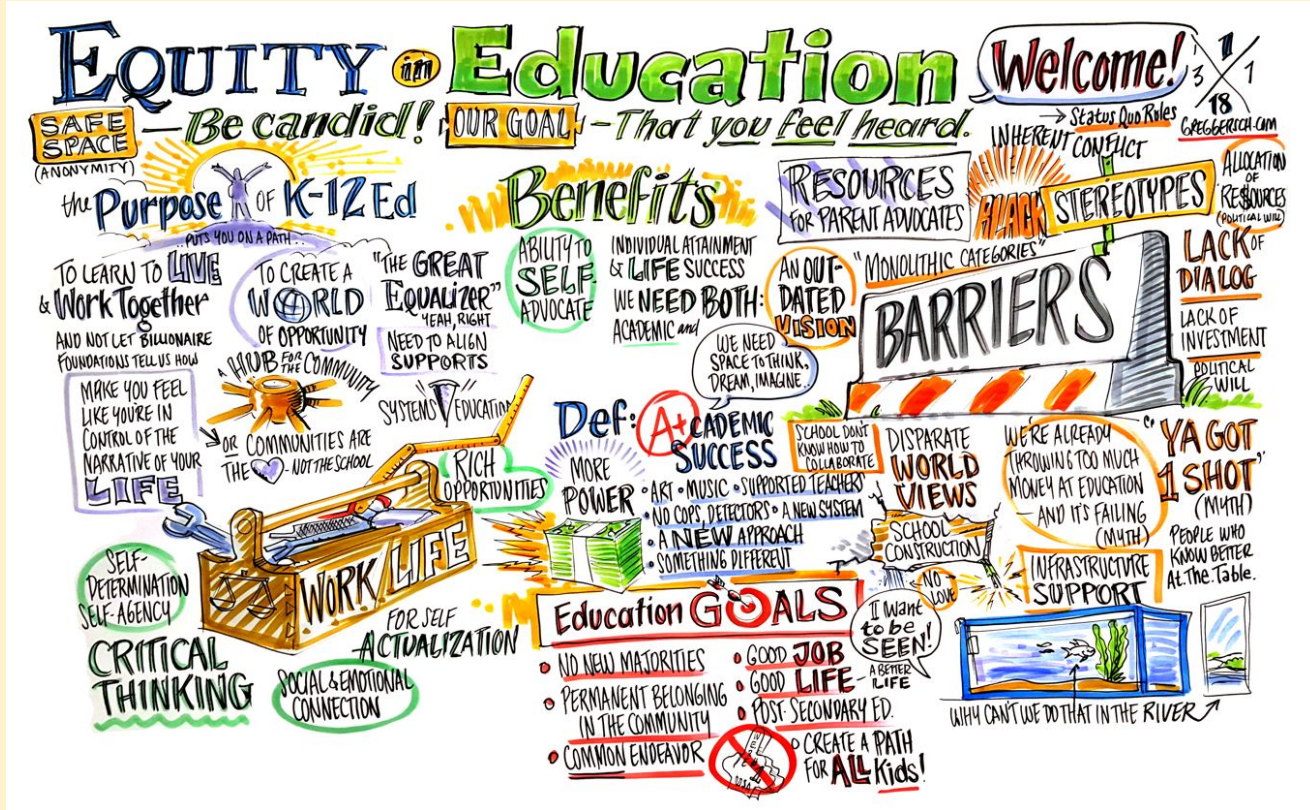 EQUITY in Education
Welcome!
1/31/18
GREGGERSCH.COM
SAFE
SPACE
(ANONYMITY)
— Be candid!
OUR GOAL
- That you feel heard.
the Purpose OF K-12 Ed
PUTS YOU ON A PATH...
TO LEARN TO LIVE
& Work Together
AND NOT LET BILLIONAIRE
FOUNDATIONS TELL US HOW
MAKE YOU FEEL
LIKE YOU'RE IN
CONTROL OF THE
NARRATIVE OF YOUR
LIFE
TO CREATE A
WORLD
OF OPPORTUNITY
A HUB FOR THE COMMUNITY
OR COMMUNITIES ARE
THE - NOT THE SCHOOL
"THE GREAT
EQUALIZER"
YEAH, RIGHT
NEED TO ALIGN
SUPPORTS
SYSTEMS EDUCATION
WORK LIFE
RICH
OPPORTUNITIES
SELF-
DETERMINATION
SELF-AGENCY
CRITICAL
THINKING
SOCIAL & EMOTIONAL
CONNECTION
FOR SELF
ACTUALIZATION
Benefits
ABILITY TO
SELF-
ADVOCATE
INDIVIDUAL ATTAINMENT
& LIFE SUCCESS
WE NEED BOTH:
ACADEMIC and
WE NEED
SPACE TO THINK,
DREAM, IMAGINE...
Def: A+CADEMIC
SUCCESS
MORE
POWER
• ART • MUSIC • SUPPORTED TEACHERS
• NO COPS, DETECTORS • A NEW SYSTEM
• A NEW APPROACH
• SOMETHING DIFFERENT
Education GOALS
• NO NEW MAJORITIES
• PERMANENT BELONGING
IN THE COMMUNITY
• COMMON ENDEAVOR
• GOOD JOB
• GOOD LIFE - A BETTER
LIFE
• POST-SECONDARY ED.
• CREATE A PATH
FOR ALL Kids!
I Want
to be
SEEN!
RESOURCES
FOR PARENT ADVOCATES
AN OUT-
DATED
VISION
→ Status Quo Rules
INHERENT
CONFLICT
BLACK STEREOTYPES
"MONOLITHIC CATEGORIES"
BARRIERS
ALLOCATION
OF
RE$OURCES
(POLITICAL WILL)
LACK OF
DIALOG
LACK OF
INVESTMENT
POLITICAL
WILL
SCHOOL DON'T
KNOW HOW TO
COLLABORATE
DISPARATE
WORLD
VIEWS
SCHOOL
CONSTRUCTION
NO
LOVE
WE'RE ALREADY
THROWING TOO MUCH
MONEY AT EDUCATION
— AND IT'S FAILING
(MYTH)
"YA GOT
1 SHOT"
(MYTH)
PEOPLE WHO
KNOW BETTER
At.The.Table.
INFRASTRUCTURE
SUPPORT
WHY CAN'T WE DO THAT IN THE RIVER